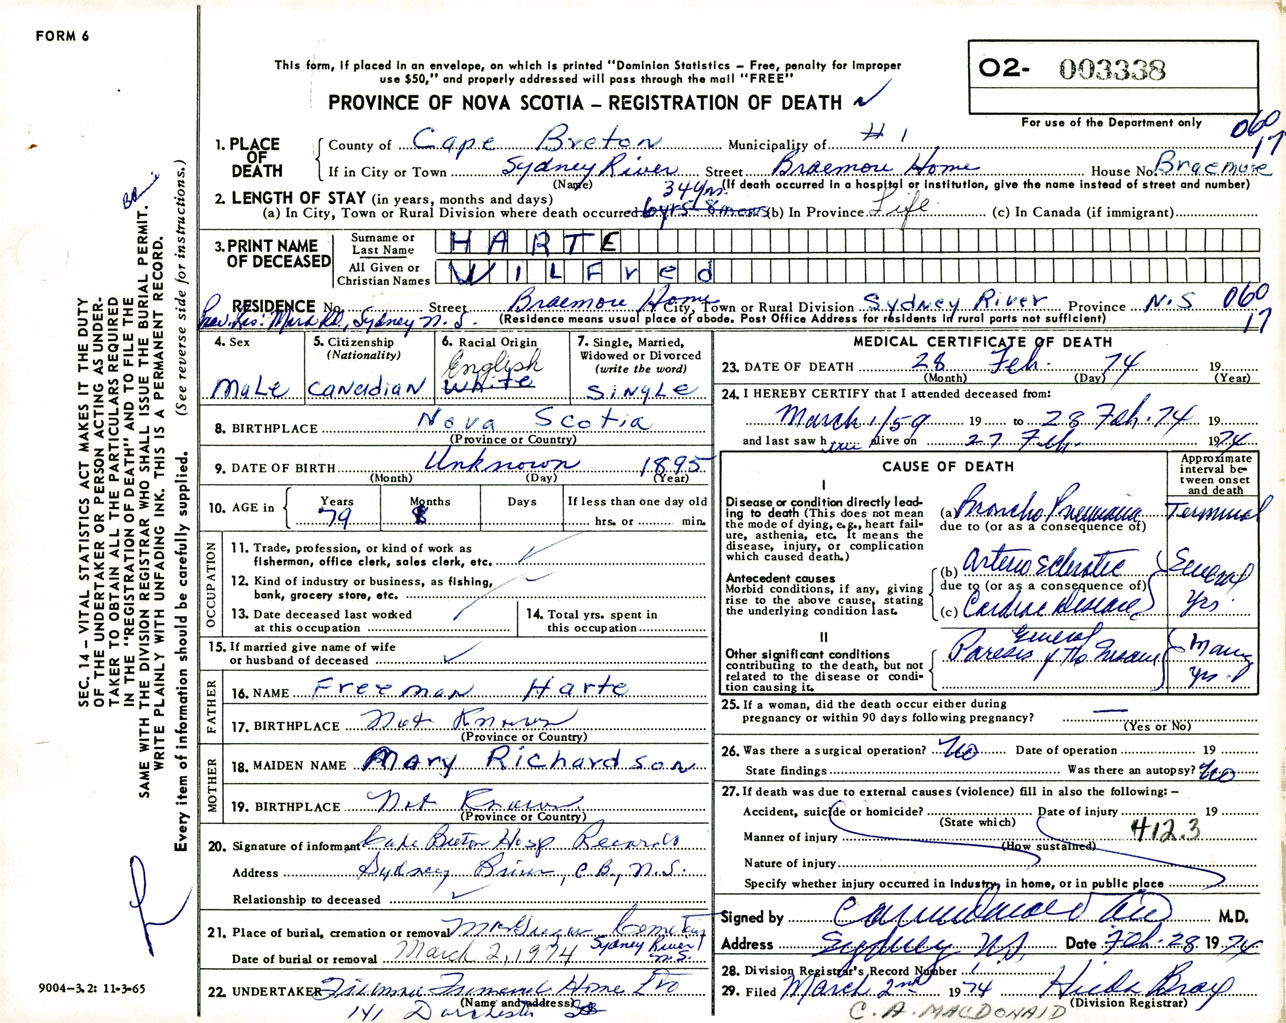 FORM 6
This form, if placed in an envelope, on which is printed "Dominion Statistics – Free, penalty for improper
use $50," and properly addressed will pass through the mail "FREE"
PROVINCE OF NOVA SCOTIA – REGISTRATION OF DEATH
02- 003338
For use of the Department only
060
17
1. PLACE OF DEATH
County of Cape Breton Municipality of #1
If in City or Town Sydney River Street Braemore Home House No. Braemore
(Name) (If death occurred in a hospital or institution, give the name instead of street and number)
2. LENGTH OF STAY (in years, months and days)
34 yrs.
(a) In City, Town or Rural Division where death occurred 6 yrs 8 mons (b) In Province Life (c) In Canada (if immigrant)
3. PRINT NAME OF DECEASED
Surname or Last Name HARTE
All Given or Christian Names WILFred
RESIDENCE No. Street Braemore Home City, Town or Rural Division Sydney River Province N.S 060
17
Sydney N.S. (Residence means usual place of abode. Post Office Address for residents in rural parts not sufficient)
4. Sex
MaLe
5. Citizenship
(Nationality)
CANadiaN
6. Racial Origin
English
White
7. Single, Married,
Widowed or Divorced
(write the word)
SiNgLe
8. BIRTHPLACE Nova Scotia
(Province or Country)
9. DATE OF BIRTH Unknown 1895
(Month) (Day) (Year)
10. AGE in
Years 79
Months 8
Days
If less than one day old
hrs. or min.
OCCUPATION
11. Trade, profession, or kind of work as
fisherman, office clerk, sales clerk, etc.
12. Kind of industry or business, as fishing,
bank, grocery store, etc.
13. Date deceased last worked
at this occupation
14. Total yrs. spent in
this occupation
15. If married give name of wife
or husband of deceased
FATHER
16. NAME Freeman Harte
17. BIRTHPLACE Not Known
(Province or Country)
MOTHER
18. MAIDEN NAME Mary Richardson
19. BIRTHPLACE Not Known
(Province or Country)
20. Signature of informant Cape Breton Hosp Records
Address Sydney River, C.B., N.S.
Relationship to deceased
21. Place of burial, cremation or removal Cemetery
Sydney River
N.S.
Date of burial or removal March 2, 1974
22. UNDERTAKER Funeral Home Ltd
(Name and address)
141 Dorchester St
MEDICAL CERTIFICATE OF DEATH
23. DATE OF DEATH 28 Feb. 74 19
(Month) (Day) (Year)
24. I HEREBY CERTIFY that I attended deceased from:
March 1/59 19 to 28 Feb. 74 19
and last saw him alive on 27 Feb. 1974
CAUSE OF DEATH
Approximate
interval be-
tween onset
and death
I
Disease or condition directly lead-
ing to death (This does not mean
the mode of dying, e.g., heart fail-
ure, asthenia, etc. It means the
disease, injury, or complication
which caused death.)
(a) Broncho Pneumonia Terminal
due to (or as a consequence of)
Antecedent causes
Morbid conditions, if any, giving
rise to the above cause, stating
the underlying condition last.
(b) Arterio Sclerotic Several
due to (or as a consequence of)
(c) Cardiac Disease yrs.
II
Other significant conditions
contributing to the death, but not
related to the disease or condi-
tion causing it.
General
Paresis of the Insane Many
yrs.
25. If a woman, did the death occur either during
pregnancy or within 90 days following pregnancy? —
(Yes or No)
26. Was there a surgical operation? No Date of operation 19
State findings Was there an autopsy? No
27. If death was due to external causes (violence) fill in also the following: –
Accident, suicide or homicide? Date of injury 19
(State which)
412.3
Manner of injury
(How sustained)
Nature of injury
Specify whether injury occurred in Industry, in home, or in public place
Signed by M.D.
Address Sydney NS. Date Feb. 28 1974
28. Division Registrar's Record Number 1
29. Filed March 2nd 1974 Hilda Bray
(Division Registrar)
C. A. MACDONALD
SEC. 14 – VITAL STATISTICS ACT MAKES IT THE DUTY
OF THE UNDERTAKER OR PERSON ACTING AS UNDER-
TAKER TO OBTAIN ALL THE PARTICULARS REQUIRED
IN THE "REGISTRATION OF DEATH" AND TO FILE THE
SAME WITH THE DIVISION REGISTRAR WHO SHALL ISSUE THE BURIAL PERMIT.
WRITE PLAINLY WITH UNFADING INK. THIS IS A PERMANENT RECORD.
Every item of information should be carefully supplied. (See reverse side for instructions.)
9004-3.2: 11-3-65